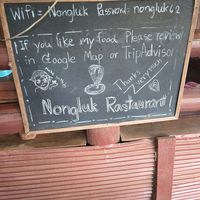 WiFi = Nongluk Password: nongluk62
If you like my food Please review
in Google Map or TripAdvisor
Thanks
very much
Nongluk Rastaurant